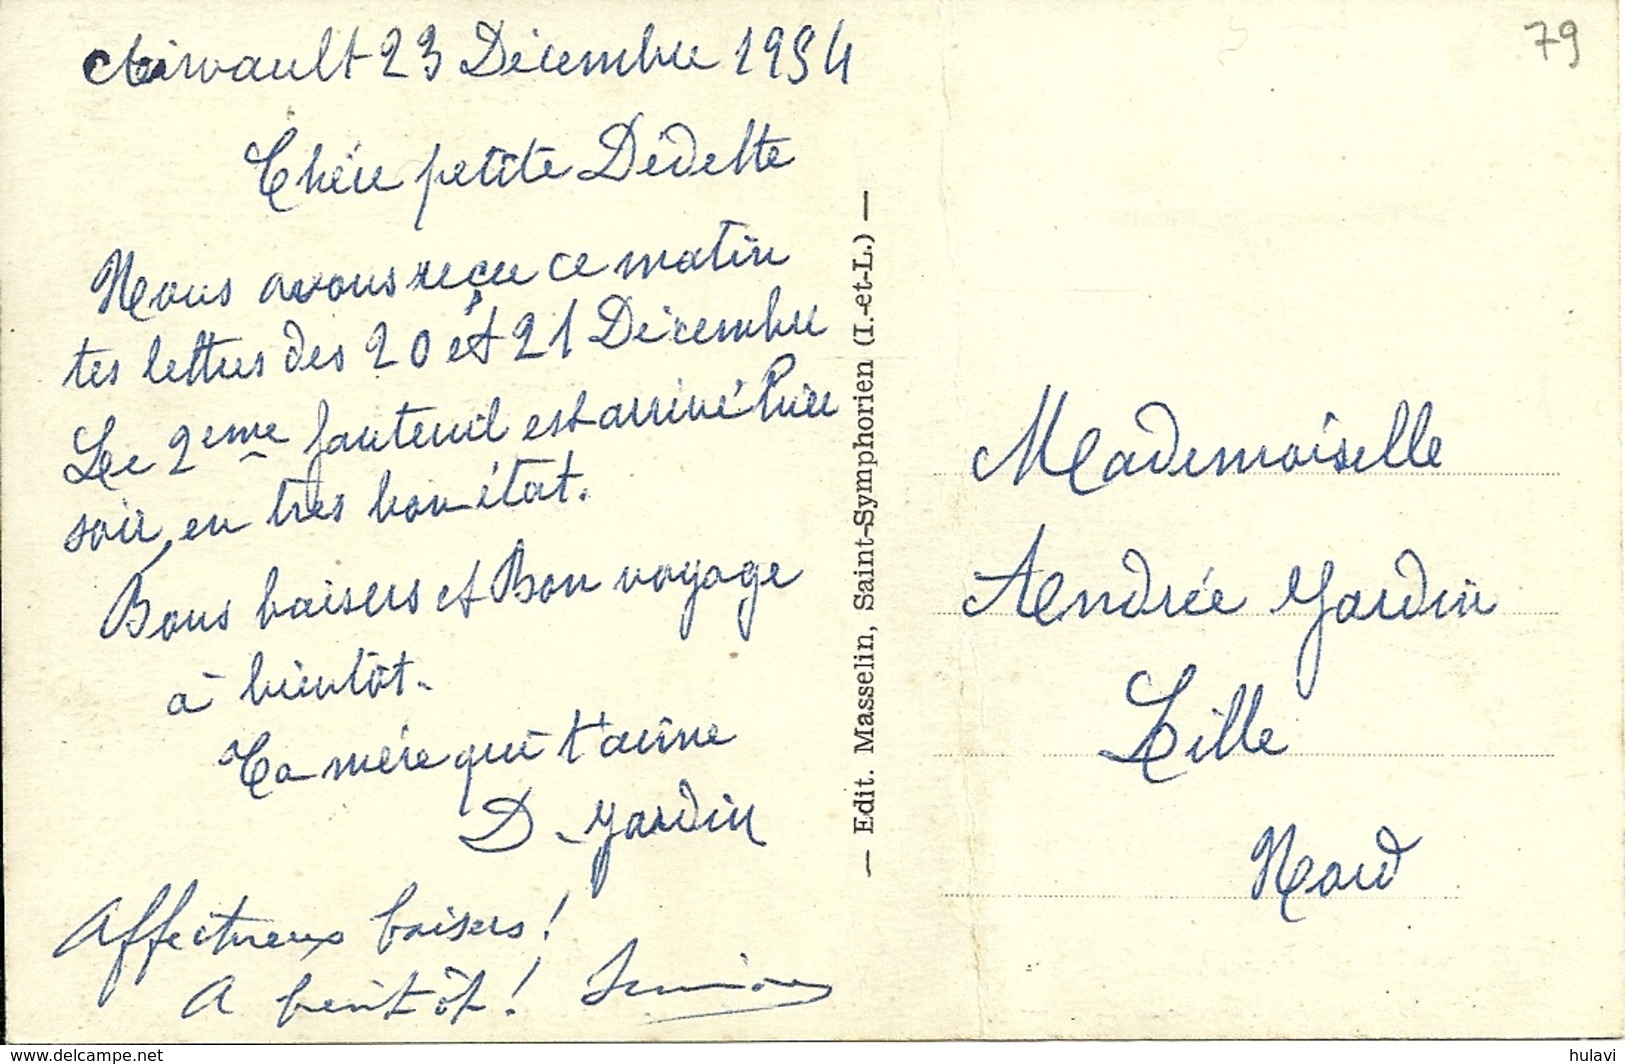 Airvault 23 Décembre 1954
Chére petite Dédette
Nous avons reçu ce matin
tes lettres des 20 et 21 Décembre
Le 2eme fauteuil est arrivé hier
soir, en très bon état.
Bons baisers et Bon voyage
à bientôt.
Ta mére qui t'aime
D. Jardin
Affectueux baisers !
A bientôt !
— Edit. Masselin, Saint-Symphorien (I.-et-L.) —
79
Mademoiselle
Andrée Jardin
Lille
Nord
delcampe.net
hulavi